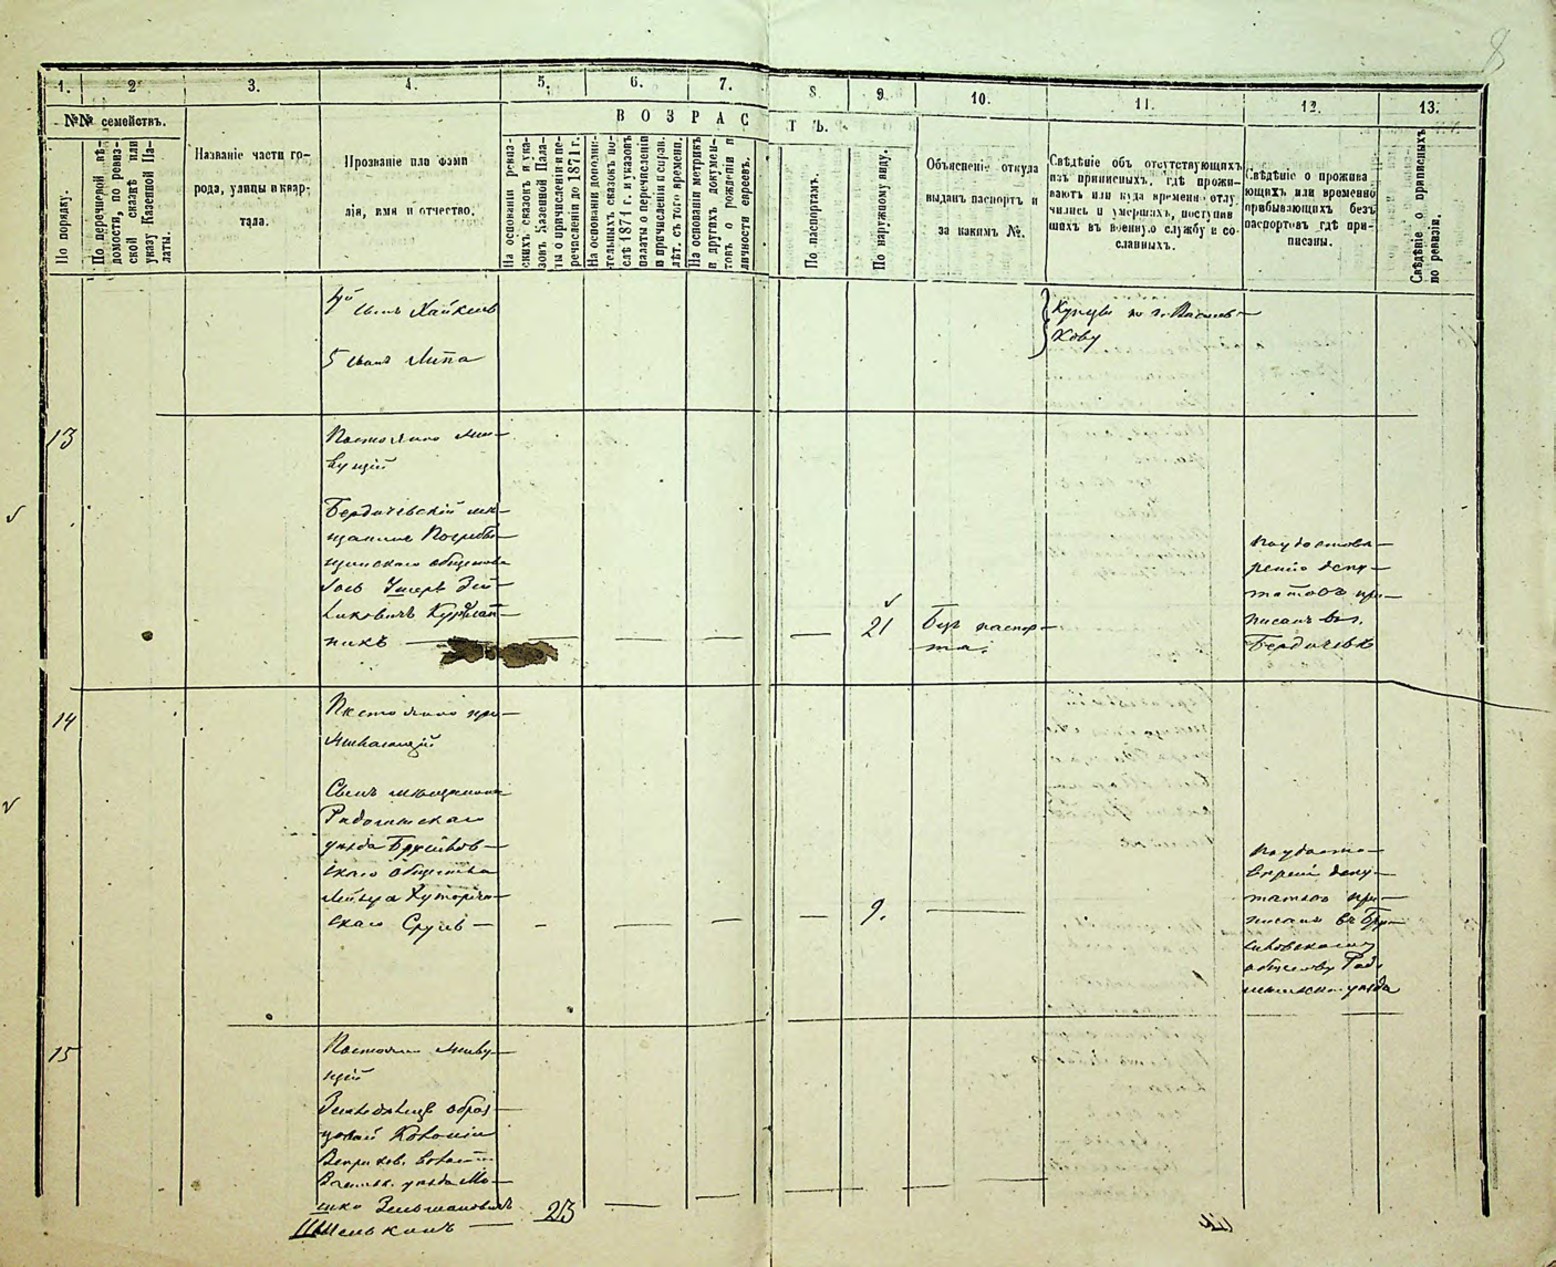 8
1. 2 3. 4. 5. 6. 7. 8. 9. 10. 11. 12. 13.
№№ семействъ.
ВОЗРАСТЪ.
По порядку.
По перечневой вѣ-
домости, по ревиз-
ской сказкѣ или
указу Казенной Па-
латы.
Названіе части го-
рода, улицы и квар-
тала.
Прозваніе или фами
лія, имя и отчество.
На основаніи ревиз-
скихъ сказокъ и ука-
зовъ Казенной Пала-
ты о причисленіи и пе-
речисленіи до 1871 г.
На основаніи дополни-
тельныхъ сказокъ по-
слѣ 1871 г. и указовъ
палаты о перечисленіи
и причисленіи и справ.
лѣт. съ того времени.
На основаніи метрикъ
и другихъ докумен-
товъ о рожденіи и
личности евреевъ.
По паспортамъ.
По наружному виду.
Объясненіе откуда
выданъ паспортъ и
за какимъ №.
Свѣдѣніе объ отсутствующихъ
изъ приписныхъ, гдѣ прожи-
ваютъ или куда временно отлу
чились и умершихъ, поступив
шихъ въ военную службу и со-
сланныхъ.
Свѣдѣніе о прожива
ющихъ или временно
прибывающихъ безъ
паспортовъ гдѣ при-
писаны.
Свѣдѣніе о приписныхъ
по ревизіи.
4й сынъ Хайкель
5 сынъ Липа
Купцы по г. Василь-
кову
13
Постоянно жи-
вущій
Бердичевскій мѣ-
щанинъ Погребы-
щенскаго общества
Іось Ушеръ Зей-
ликовичъ
никъ — — — — —
21
Безъ паспор-
та.
По удостовѣ-
ренію депу-
татовъ при-
писанъ въ г.
Бердичевѣ
14
Постоянно про-
живающій
Сынъ мѣщанина
Радомысльскаго
уѣзда Брусилов-
скаго общества
Лейзера
скаго Сруль — - — — —
9. —
По удосто-
вѣренію депу-
татовъ при-
писанъ въ Бру-
силовскому
обществу Радо-
мысльскаго уѣзда
15
Постоянно живу-
щій
Земледѣлецъ образ-
цовой Колоніи
Веприков. волости
Васильк. уѣзда Мо-
шко Зельмановичъ
Шмелькинъ — 23 — — — — —